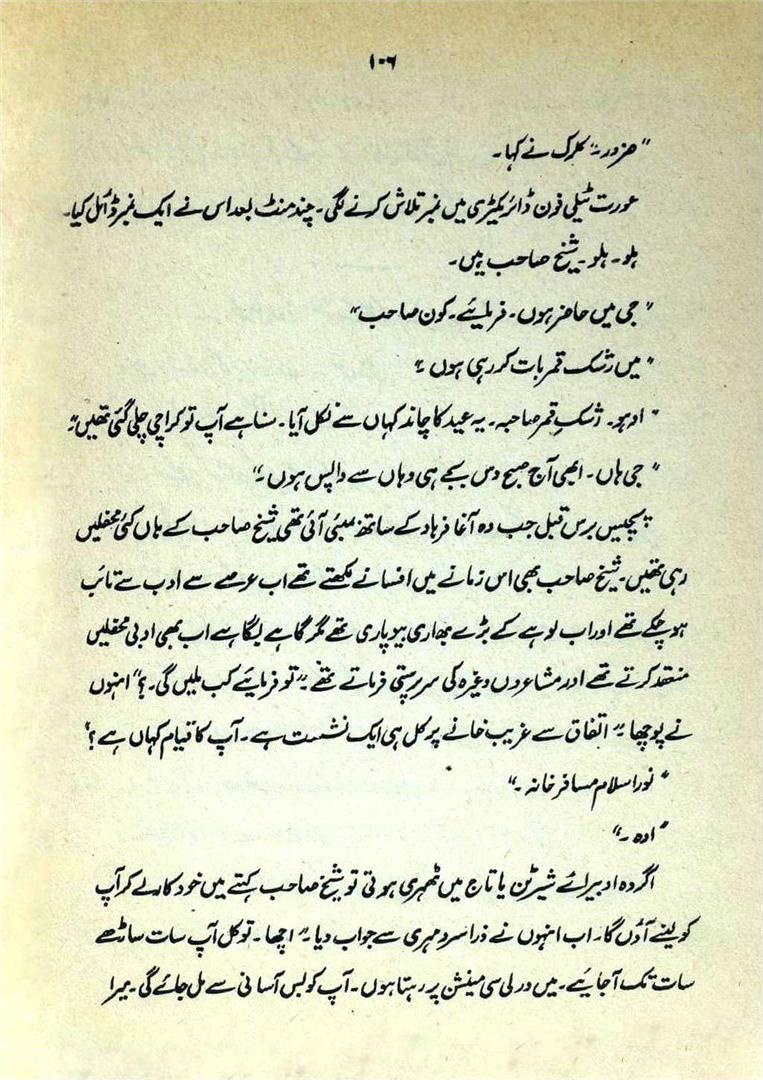 ۱۰۶
"ضرور۔" کلرک نے کہا۔
عورت ٹیلی فون ڈائریکٹری میں نمبر تلاش کرنے لگی۔ چند منٹ بعد اس نے ایک نمبر ڈائل کیا۔
ہلو۔ ہلو۔ شیخ صاحب ہیں۔
"جی میں حاضر ہوں۔ فرمایئے۔ کون صاحب"
"میں رشک قمر بات کر رہی ہوں۔"
"اوہو۔ رشکِ قمر صاحبہ۔ یہ عید کا چاند کہاں سے نکل آیا۔ سنا ہے آپ تو کراچی چلی گئی تھیں۔"
"جی ہاں۔ ابھی آج صبح دس بجے ہی وہاں سے واپس ہوں۔"
پچیس برس قبل جب وہ آغا فرہاد کے ساتھ بمبئی آئی تھی شیخ صاحب کے ہاں کئی محفلیں
رہی تھیں۔ شیخ صاحب بھی اس زمانے میں افسانے لکھتے تھے اب عرصے سے ادب سے تائب
ہو چکے تھے اور اب لوہے کے بڑے بھاری بیوپاری تھے مگر گاہے لگاہے اب بھی ادبی محفلیں
منعقد کرتے تھے اور مشاعروں وغیرہ کی سرپرستی فرماتے تھے۔ "تو فرمایئے کب ملیں گی۔؟" انہوں
نے پوچھا۔ "اتفاق سے غریب خانے پر کل ہی ایک نشست ہے۔ آپ کا قیام کہاں ہے؟"
"نور اسلام مسافر خانہ۔"
"اوہ۔"
اگر وہ اوبیرائے شیرٹن یا تاج میں ٹھہری ہوتی تو شیخ صاحب کہتے میں خود کار لے کر آپ
کو لینے آؤں گا۔ اب انہوں نے ذرا سرد مہری سے جواب دیا۔ "اچھا۔ تو کل آپ سات ساڑھے
سات تک آ جایئے۔ میں ورلی سی مینشن پر رہتا ہوں۔ آپ کو بس آسانی سے مل جائے گی۔ میرا